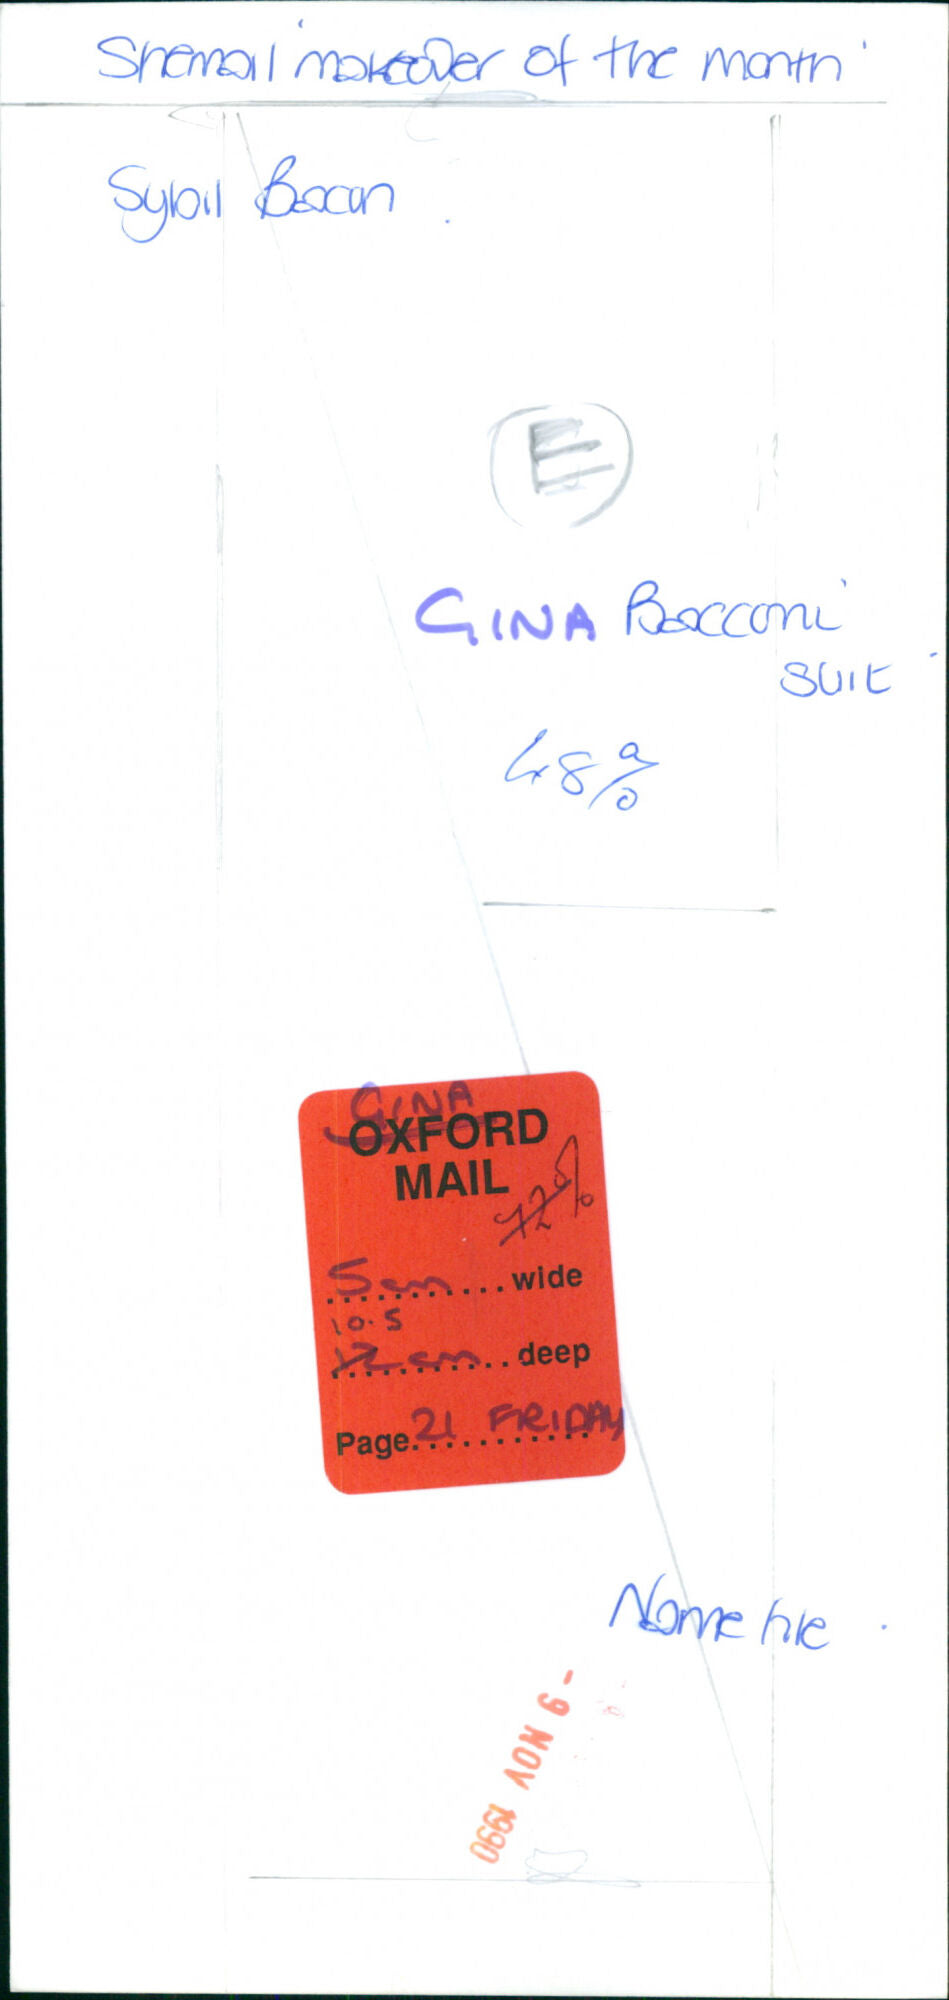 Shemail 'makeover of the month'
Sybil Bacon
E
GINA Bacconi
suit
48%
GINA
OXFORD
MAIL
72%
5cm wide
10.5
12cm deep
Page 21 FRIDAY
Name file
- 9 NOV 1990